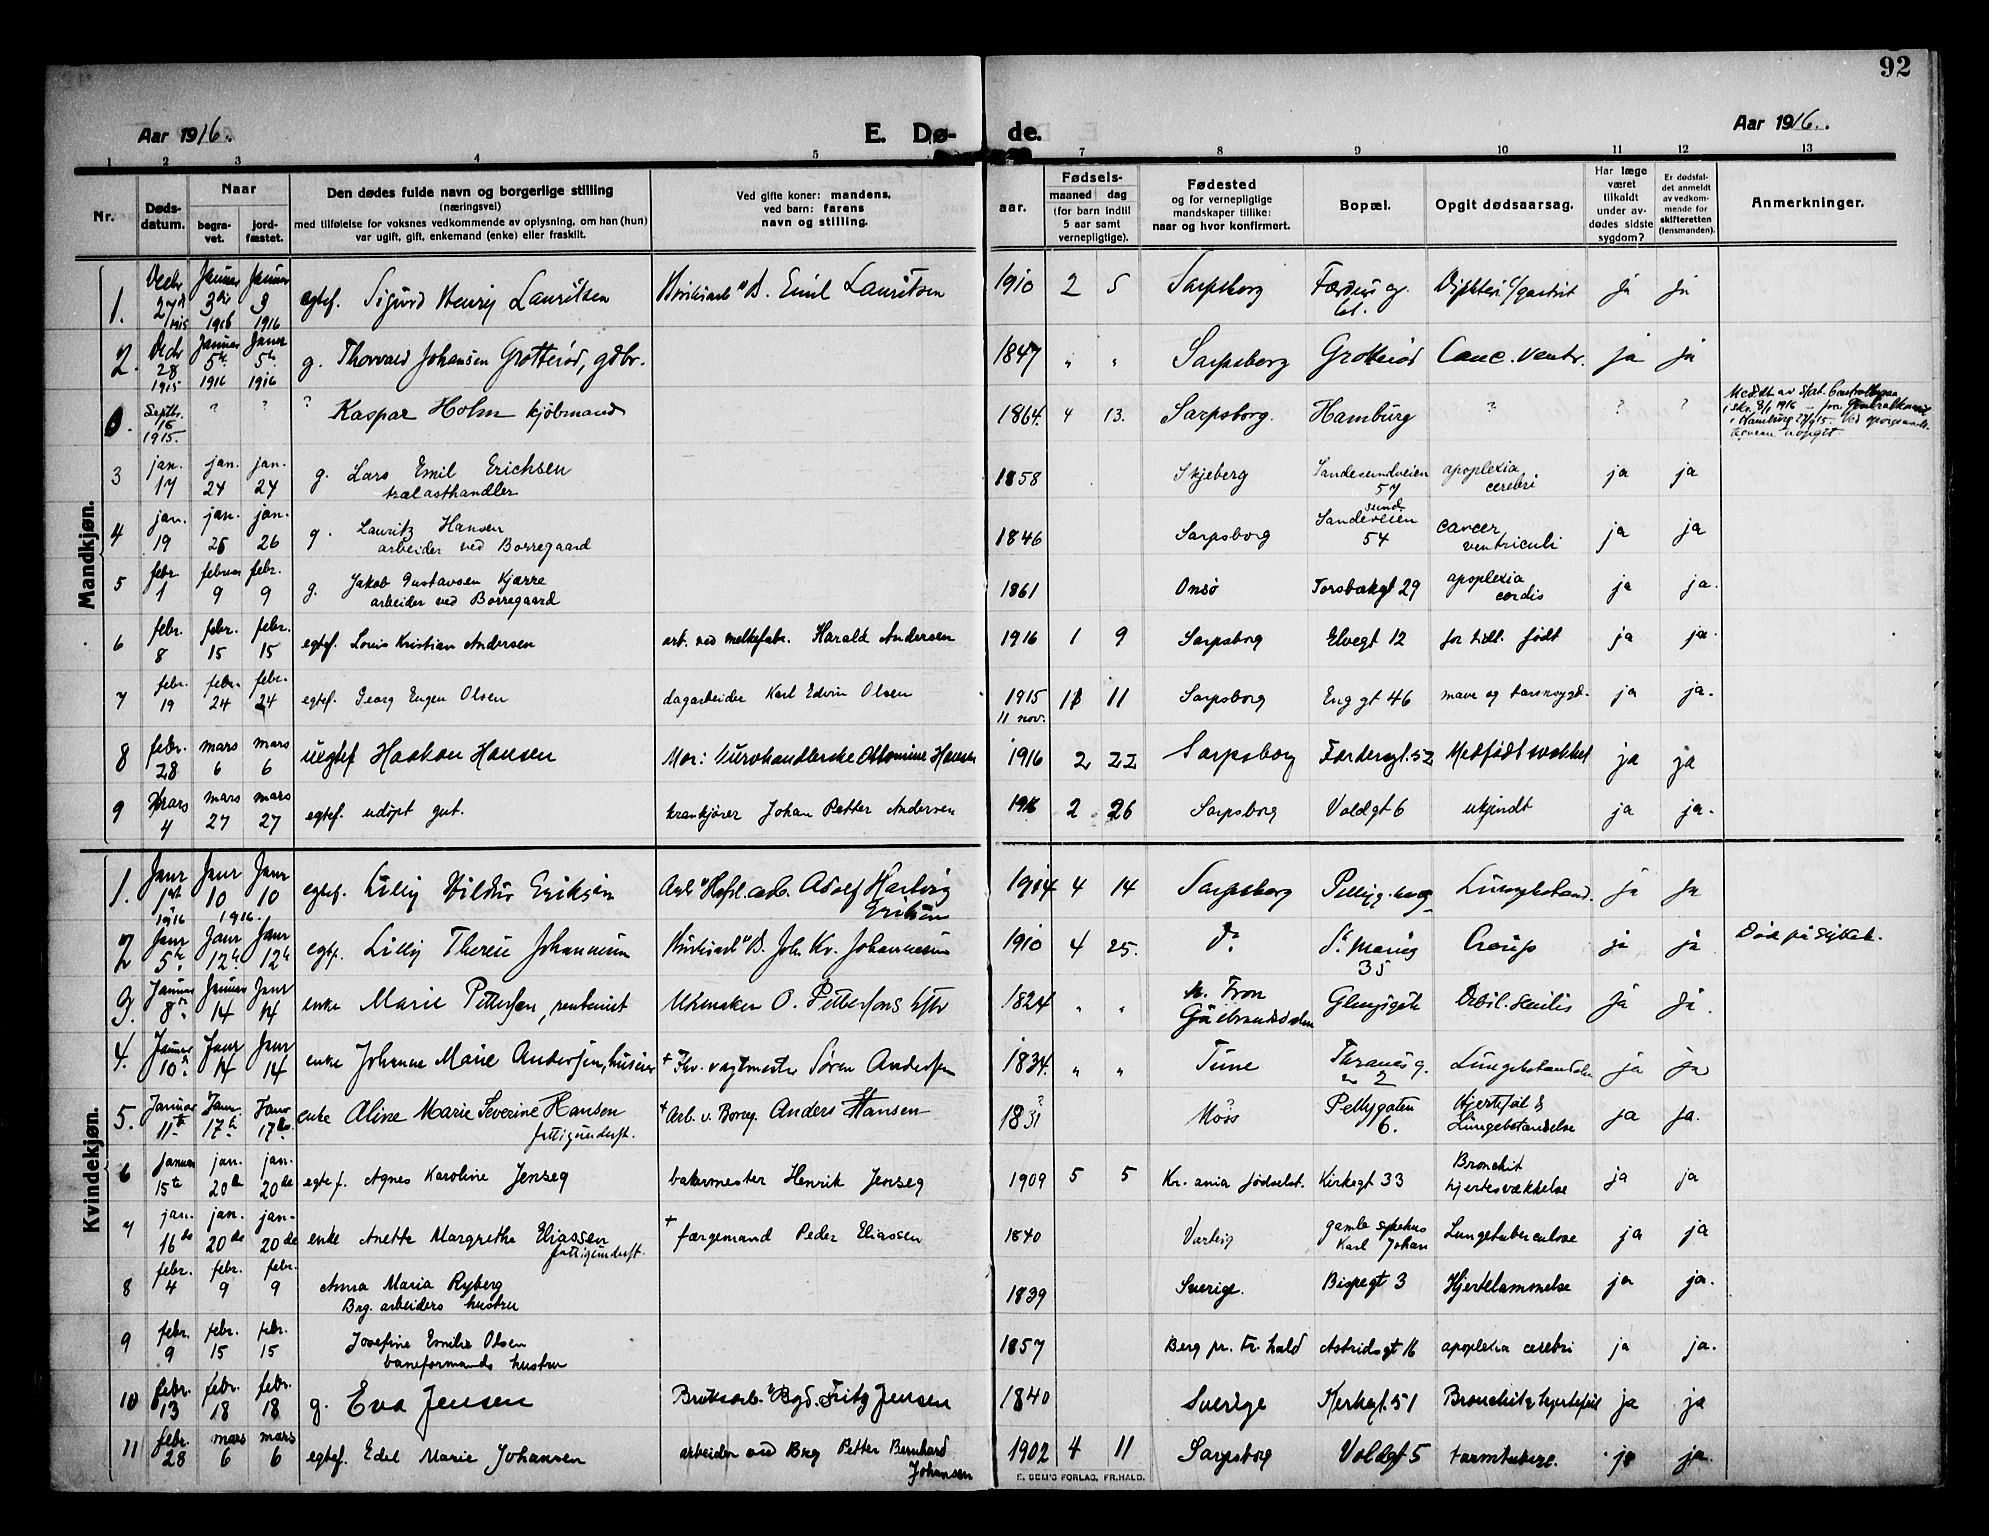 92
Aar 1916.
E. Dø-
de.
Aar 1916.
1 2 3 4 5 7 8 9 10 11 12 13
Nr.
Døds-
datum.
Naar
begra-
vet.
jord-
fæstet.
Den dødes fulde navn og borgerlige stilling
(næringsvei)
med tilføielse for voksnes vedkommende av oplysning, om han (hun)
var ugift, gift, enkemand (enke) eller fraskilt.
Ved gifte koner: mandens,
ved barn: farens
navn og stilling.
Fødsels-
aar.
maaned dag
(for barn indtil
5 aar samt
vernepligtige).
Fødested
og for vernepligtige
mandskaper tillike:
naar og hvor konfirmert.
Bopæl.
Opgit dødsaarsag.
Har læge
været
tilkaldt
under av-
dødes sidste
sygdom?
Er dødsfal-
det anmeldt
av vedkom-
mende for
skifteretten
(lensmanden).
Anmerkninger.
Mandkjøn.
1. Decbr 27 1915 Januar 3 1916 Januar 3 1916 egtef. Sigurd Henry Lauritsen Emil Lauritsen 1910 2 5 Sarpsborg ja ja
2. Decbr 28 1915 Januar 5 1916 Januar 5 1916 g. Thorvald Johansen Grotterød, gdbr. 1847 " " Sarpsborg Grotterød Canc. ventr. ja ja
0. Septbr. 16 1915. ? ? ? Kaspar Holm kjøbmand 1864. 4 13. Sarpsborg. Hamburg ? ? ?
3 jan. 17 jan. 24 jan. 24 g. Lars Emil Erichsen
trælasthandler 1858 Skjeberg Sandesundveien 57 apoplexia cerebri ja ja
4 jan. 19 jan. 26 jan. 26 g. Lauritz Hansen
arbeider ved Borregaard 1846 Sarpsborg Sandesundveien 54 cancer ventriculi ja ja
5 febr. 1 februar 9 febr. 9 g. Jakob Gustavsen Kjærre
arbeider ved Borregaard 1861 Onsø Torsbækgt 29 apoplexia cordis ja ja.
6 febr. 8 febr. 15 febr. 15 egtef. Louis Kristian Andersen arb. ved melkefabr. Harald Andersen 1916 1 9 Sarpsborg Elvegt 12 for tidl. født ja ja.
7 febr. 19 febr. 24 febr. 24 egtef. Georg Eugen Olsen dagarbeider Karl Edvin Olsen 1915
11 nov. 11 11 Sarpsborg Enggt 46 mave og tarmsygd. ja ja.
8 febr. 28 mars 6 mars 6 uegtef Haakon Hansen Mor: Hansen 1916 2 22 Sarpsborg Færdergt. 52 Medfødt svakhet ja ja
9 Mars 4 mars 27 mars 27 egtef. udøpt gut. krankjører Johan Petter Andersen 1916 2 26 Sarpsborg Voldgt 6 ukjendt ja ja.
Kvindekjøn.
1. Janr 1st 1916 Janr 10 1916. Janr 10 egtef. Lilly Hildur Eriksen Adolf Hartvig
Eriksen 1914 4 14 Sarpsborg ja ja
2 Janr 5te Janr 12te Janr 12te egtef. Lilly Johannesen Joh. Kr. Johannesen 1910 4 25. Do St. Mariesg 35 Croup ja ja Død på sykeh.
3. Januar 8de Januar 14 Janr 14 enke Marie Pettersen, rentenist Urmaker O. Pettersens 1824 " " N. Fron
Gudbrandsdalen Glengsgate Debil. senilis ja ja.
4. Januar 10de Janr 14 Janr 14 enke Johanne Marie Andersen, + Fhv. vagtmester Søren Andersen 1834. " " Tune 2 ja ja
5. Januar 11te Janr. 17de Janr 17de enke Aline Marie Severine Hansen
fattigunderst. + Arb. v. Borreg. Anders Hansen 1831 ? ?
Moss Pellygaten 6. Hjertefeil &
Lungebetændelse ja ja.
6 Januar 15te jan. 20de jan. 20de egtef. Agnes Karoline Jenseg bakermester Henrik Jenseg 1909 5 5 Kr.ania fødselst. Kirkegt 33 Bronchit
hjertesvækkelse ja ja
7 jan. 16de jan. 20de jan. 20de enke Anette Margrethe Eliassen
fattigunderst. + færgemand Peder Eliassen 1840 Varteig gamle sykehus
Karl Johan Lungetuberculose ja ja
8 febr. 4 febr. 9 febr. 9 Anna Maria Ryberg
Brg. arbeiders hustru 1839 Sverige. Bispegt 3 Hjertelammelse ja ja.
9 febr. 9 febr. 15 febr. 15 Josefine Emilie Olsen
baneformands hustru 1857 Berg pr. Fr.hald Astridsgt 16 apoplexia cerebri ja ja.
10 febr. 13 febr. 18 febr. 18 g. Eva Jensen Fritz Jensen 1840 Sverige Kirkegt. 51 Bronchit & hjertefeil ja ja
11 febr. 28 mars 6 mars 6 egtef. Edel Marie Johansen arbeider ved Brg Petter Bernhard
Johansen 1902 4 11 Sarpsborg Voldgt 5 tarmtuberc. ja ja.
E. SEM'S FORLAG, FR.HALD.